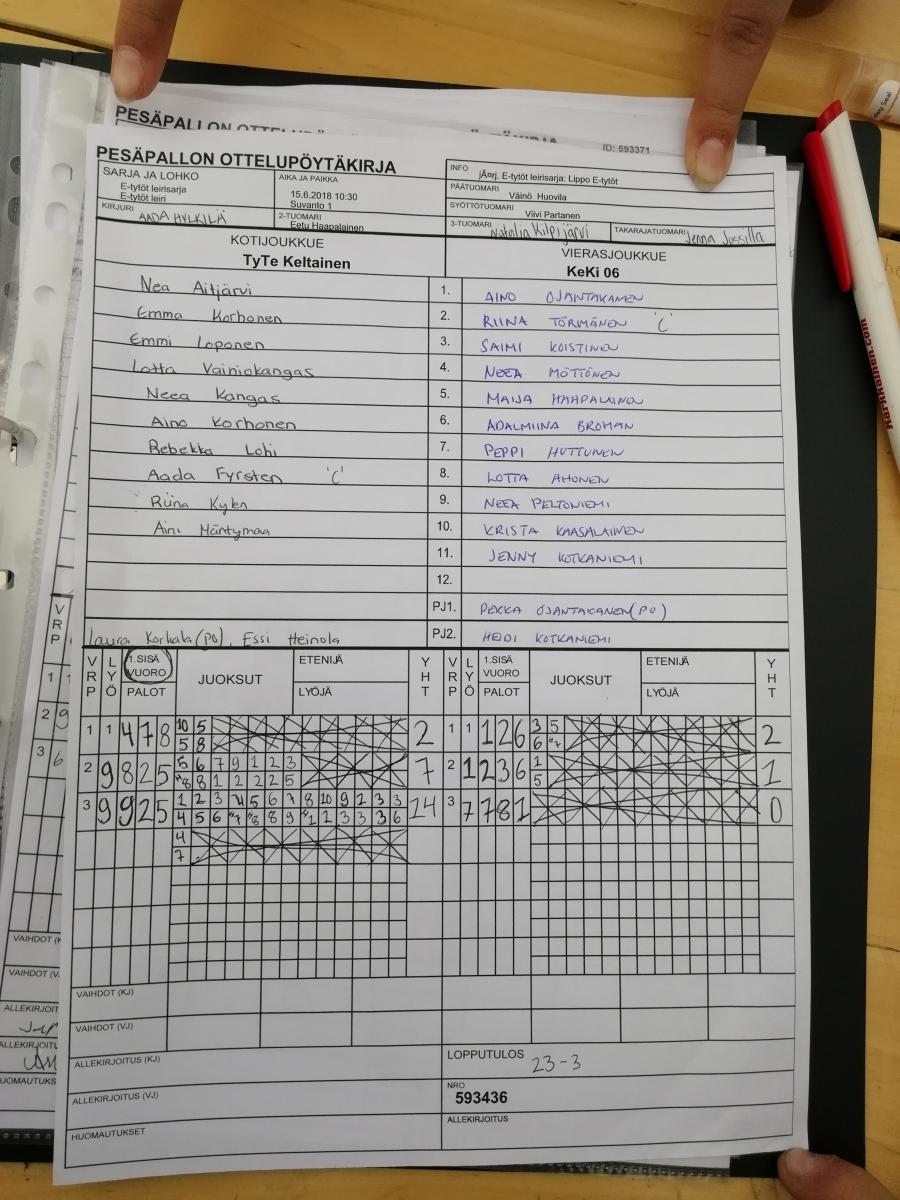 PESÄPALLON
ID: 593371
PESÄPALLON OTTELUPÖYTÄKIRJA
SARJA JA LOHKO
E-tytöt leirisarja
E-tytöt leiri
AIKA JA PAIKKA
15.6.2018 10:30
Suvanto 1
INFO
jÄerj. E-tytöt leirisarja: Lippo E-tytöt
PÄÄTUOMARI Väinö Huovila
SYÖTTÖTUOMARI Viivi Partanen
KIRJURI AADA HYLKILÄ
2-TUOMARI Eetu Haapalainen
3-TUOMARI Natalia Kilpijärvi
TAKARAJATUOMARI Jenna Jussilla
KOTIJOUKKUE
TyTe Keltainen
VIERASJOUKKUE
KeKi 06
Nea Aitjärvi 1. AINO OJANTAKANEN
Emma Korhonen 2. RIINA TÖRMÄNEN 'C'
Emmi Loponen 3. SAIMI KOISTINEN
Lotta Vainiokangas 4. NEEA MÖTTÖNEN
Neea Kangas 5. MAIJA HAAPALAINEN
Aino Korhonen 6. ADALMIINA BROMAN
Rebekka Lohi 7. PEPPI HUTTUNEN
Aada Fyrsten 'C' 8. LOTTA AHONEN
Riina Kylen 9. NEEA PELTONIEMI
Aini Mäntymaa 10. KRISTA KAASALAINEN
11. JENNY KOTKANIEMI
12.
PJ1. PEKKA OJANTAKANEN (PO)
Laura Korkala (PO), Essi Heinola PJ2. HEIDI KOTKANIEMI
VRP LYÖ 1.SISÄ VUORO PALOT JUOKSUT ETENIJÄ LYÖJÄ YHT VRP LYÖ 1.SISÄ VUORO PALOT JUOKSUT ETENIJÄ LYÖJÄ YHT
1 1 4 7 8 10 5 2 1 1 1 2 6 3 5 2
5 8 6 *7
2 9 8 2 5 5 6 7 9 1 2 3 7 2 1 2 3 6 1 1
*8 8 1 2 2 2 5 5
3 9 9 2 5 1 2 3 4 5 6 7 8 10 9 1 2 3 3 14 3 7 7 8 1 0
4 5 6 *7 *8 8 9 *1 2 3 3 3 6
4
7
VAIHDOT (KJ)
VAIHDOT (VJ)
ALLEKIRJOITUS (KJ)
LOPPUTULOS
23-3
ALLEKIRJOITUS (VJ)
NRO
593436
HUOMAUTUKSET
ALLEKIRJOITUS
VRP
1
2 9
3 6
karkkainen.com